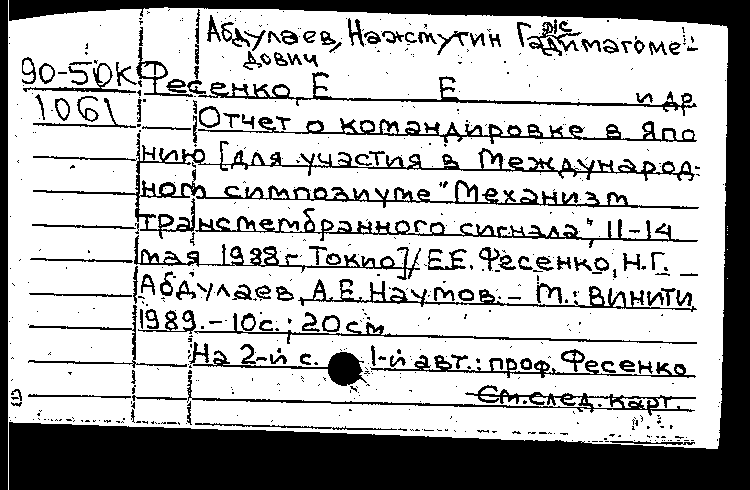 Абдулаев, Нажмутин Гаджимагоме-
дович
90-5DK Фесенко, Е Е и др.
1061 Отчет о командировке в Япо
нию [для участия в Международ-
ном симпозиуме "Механизм
трансмембранного сигнала", 11-14
мая 1988 г, Токио] / Е.Е. Фесенко, Н.Г.
Абдулаев, А.Е. Наумов. - М.: ВИНИТИ,
1989. - 10с.; 20см
На 2-й с. 1-й авт.: проф. Фесенко
См. след. карт.